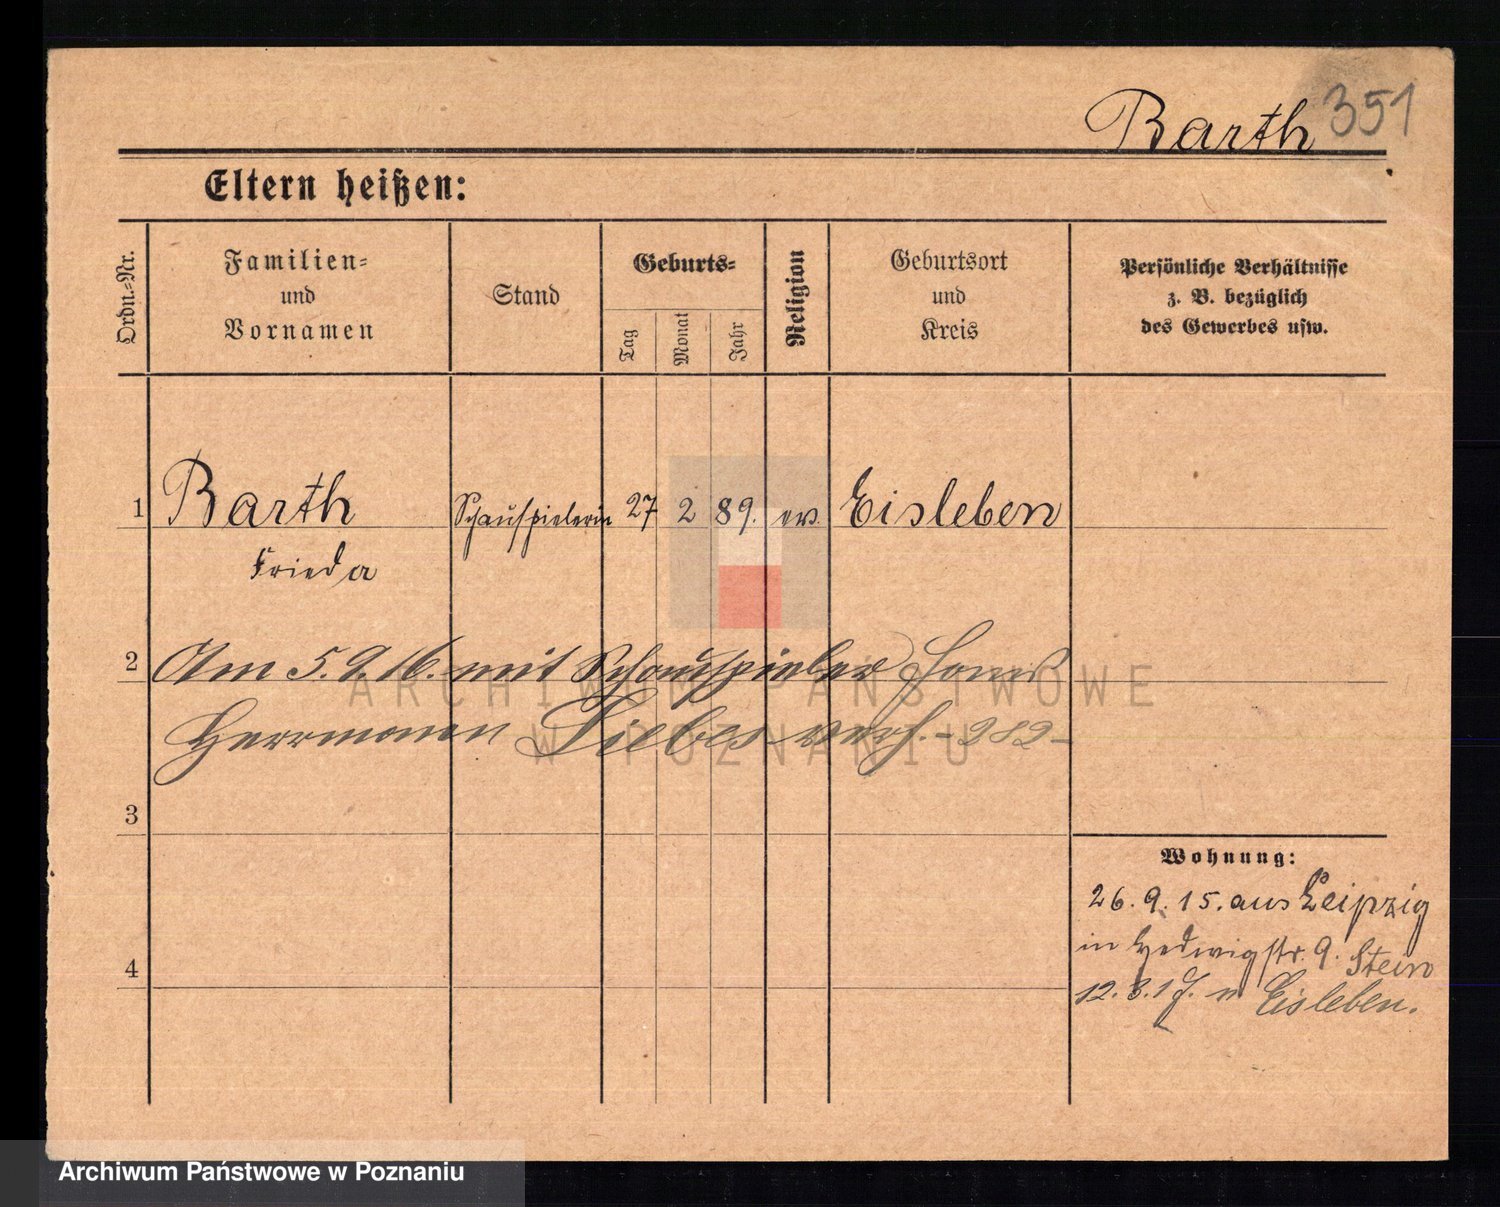 Barth 351
Eltern heißen:
Ordn.-Nr.
Familien-
und
Vornamen
Stand
Geburts-
Tag
Monat
Jahr
Religion
Geburtsort
und
Kreis
Persönliche Verhältnisse
z. B. bezüglich
des Gewerbes usw.
1 Barth Schauspielerin 27 2 89. ev. Eisleben
Frieda
2 Am 5. 9. 16. mit Schauspieler Hans
Herrmann Liebes verh. - 282 -
3
4
Wohnung:
26. 9. 15. aus Leipzig
in Hedwigstr. 9. Stein
12. 3. 17. n Eisleben.
ARCHIWUM PAŃSTWOWE
W POZNANIU
Archiwum Państwowe w Poznaniu